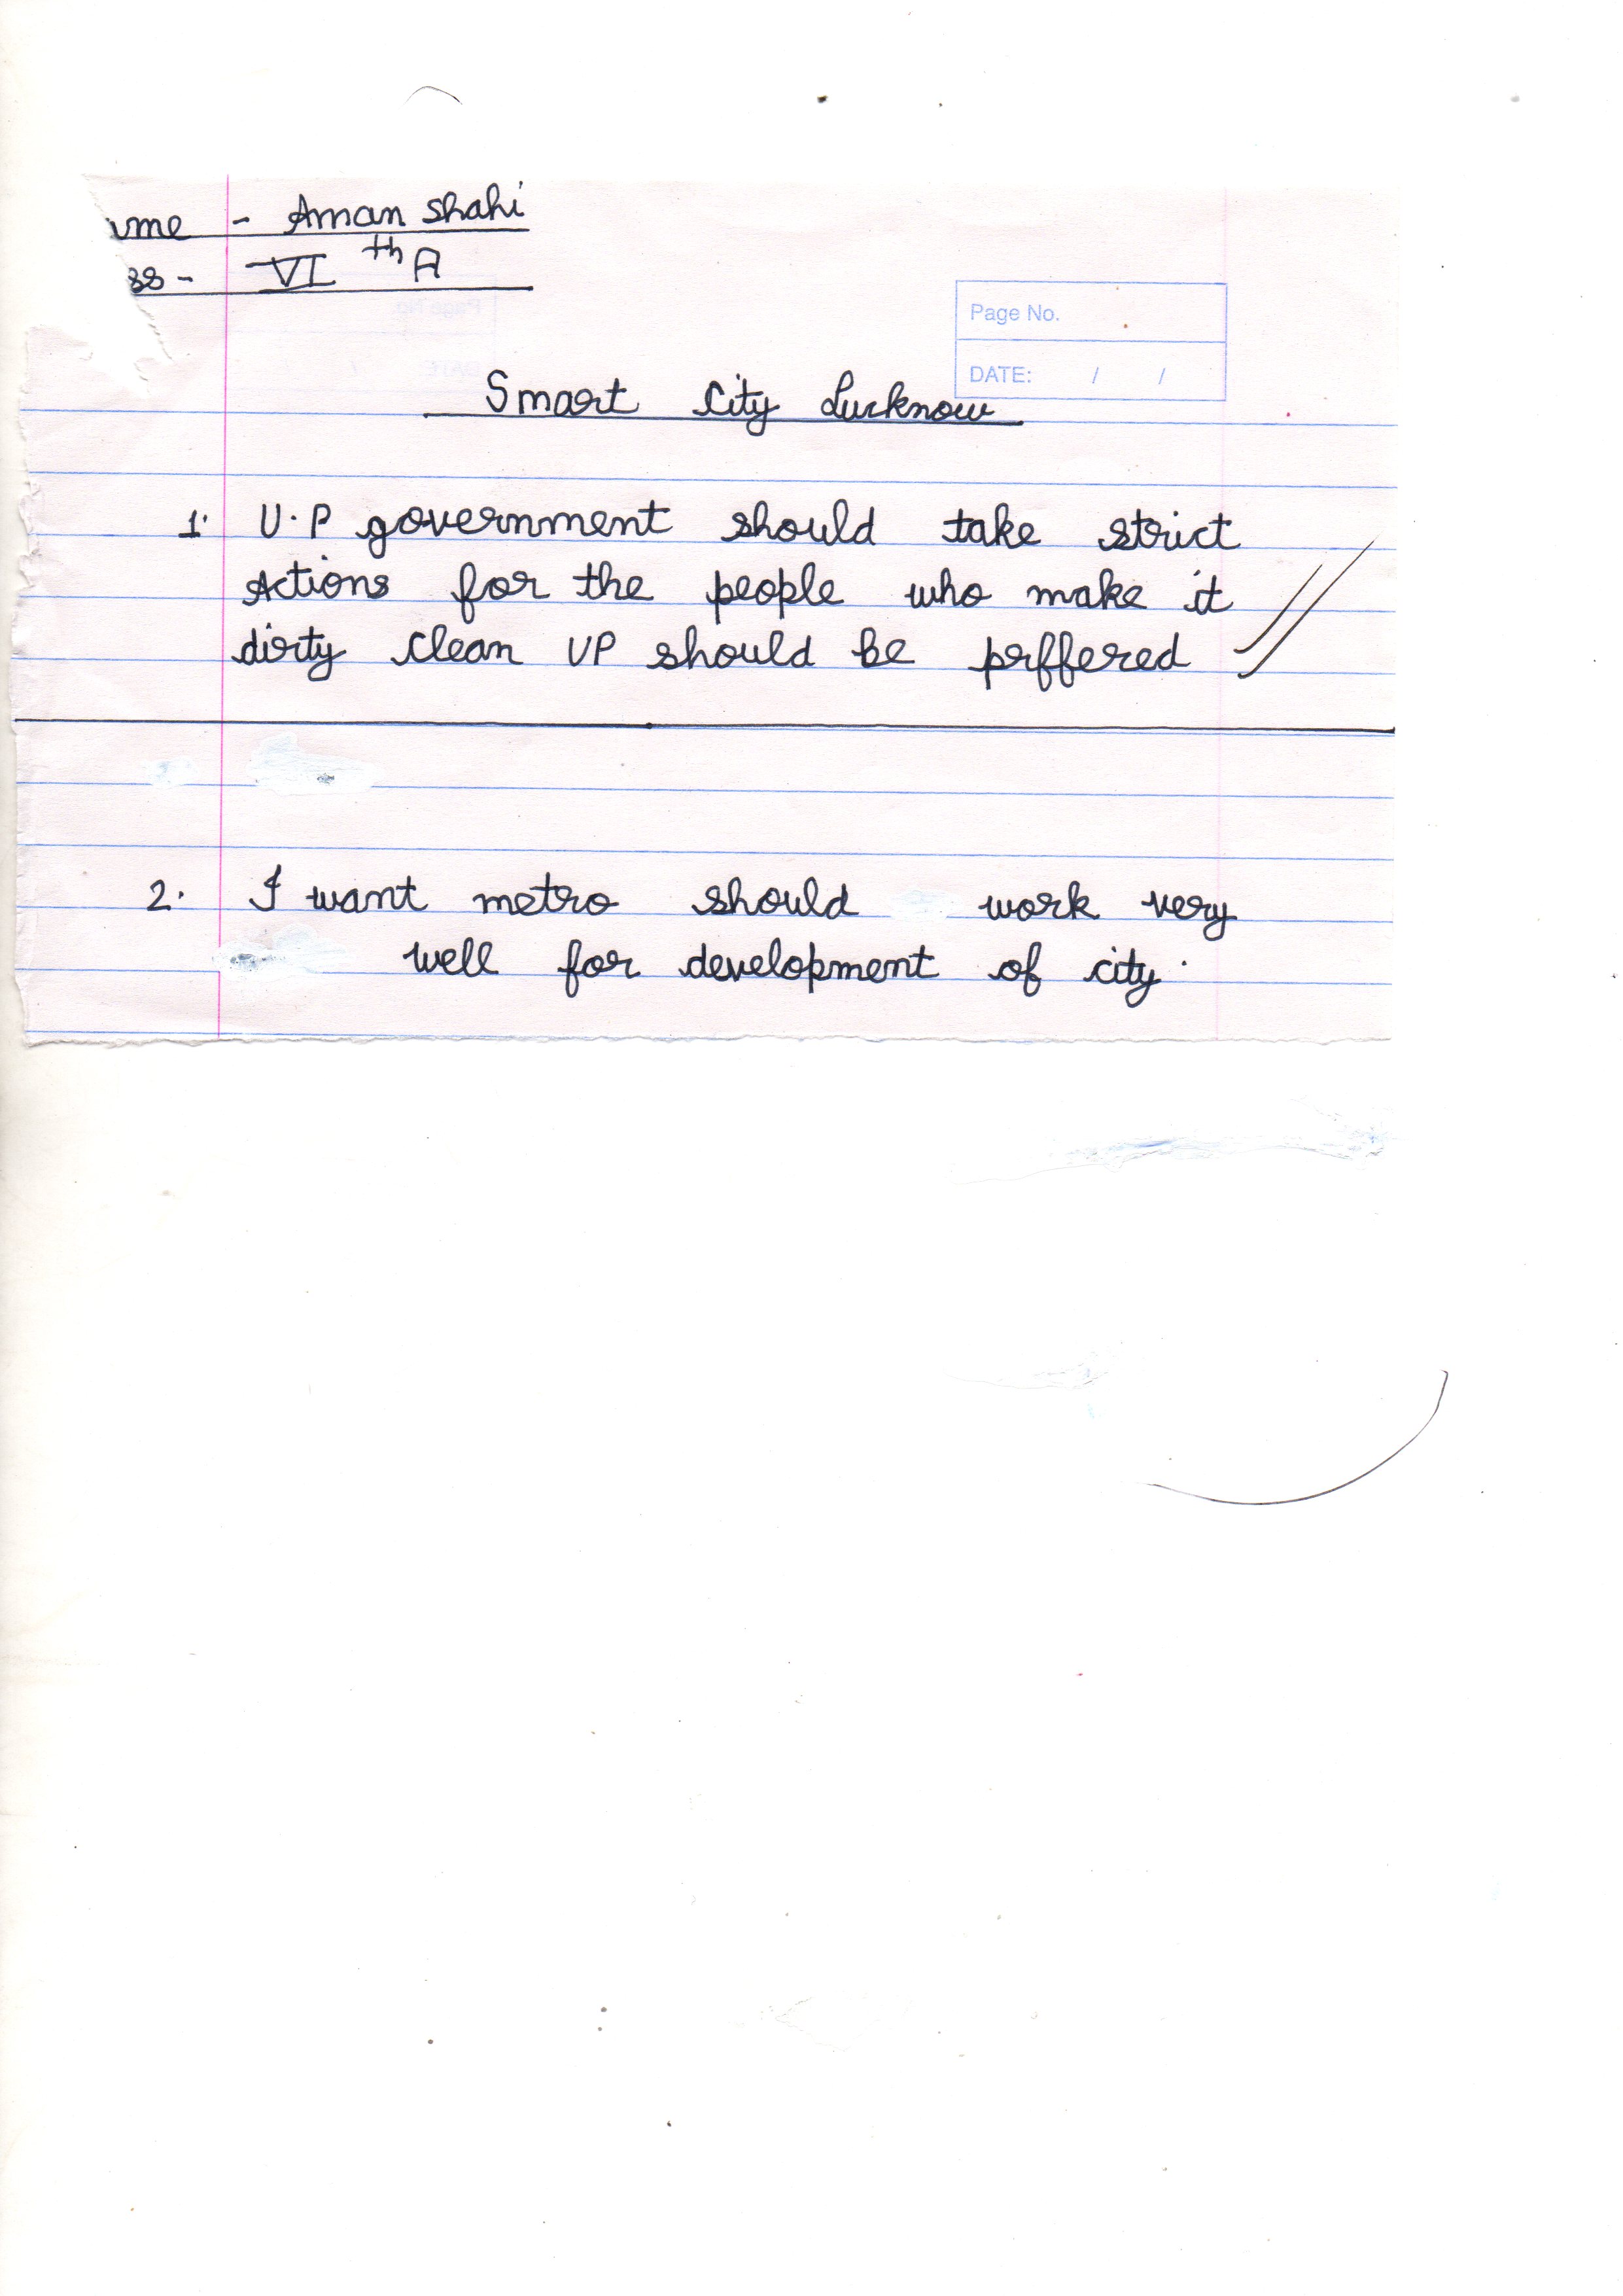 ame - Aman Shahi
ss - VI th A
Page No.
DATE: / /
Smart City Lucknow
1. U.P government should take strict
Actions for the people who make it
dirty clean UP should be prffered
2. I want metro should work very
well for development of city.